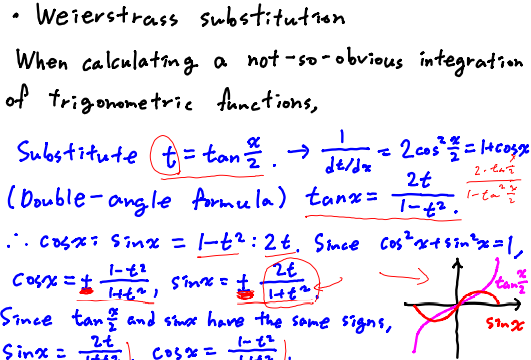 • Weierstrass substitution
When calculating a not-so-obvious integration
of trigonometric functions,
Substitute t = tan x/2. → 1/(dt/dx) = 2cos² x/2 = 1+cosx
(Double-angle formula) tanx = 2t/(1-t²). 2·tan x/2 / (1-tan² x/2)
∴ cosx : sinx = 1-t² : 2t. Since cos²x+sin²x=1,
cosx = ± (1-t²)/(1+t²), sinx = ± 2t/(1+t²).
tan x/2
Since tan x/2 and sinx have the same signs,
sinx
sinx = 2t/(1+t²), cosx = (1-t²)/(1+t²).